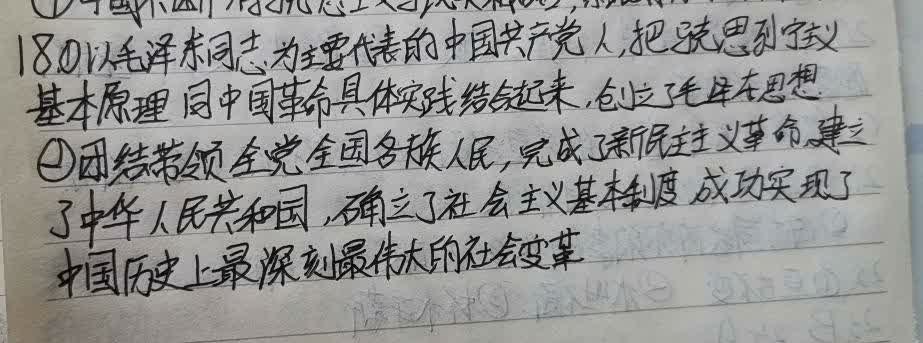 18.①以毛泽东同志为主要代表的中国共产党人,把马克思列宁主义
基本原理同中国革命具体实践结合起来,创立了毛泽东思想
②团结带领全党全国各族人民,完成了新民主主义革命,建立
了中华人民共和国,确立了社会主义基本制度 成功实现了
中国历史上最深刻最伟大的社会变革